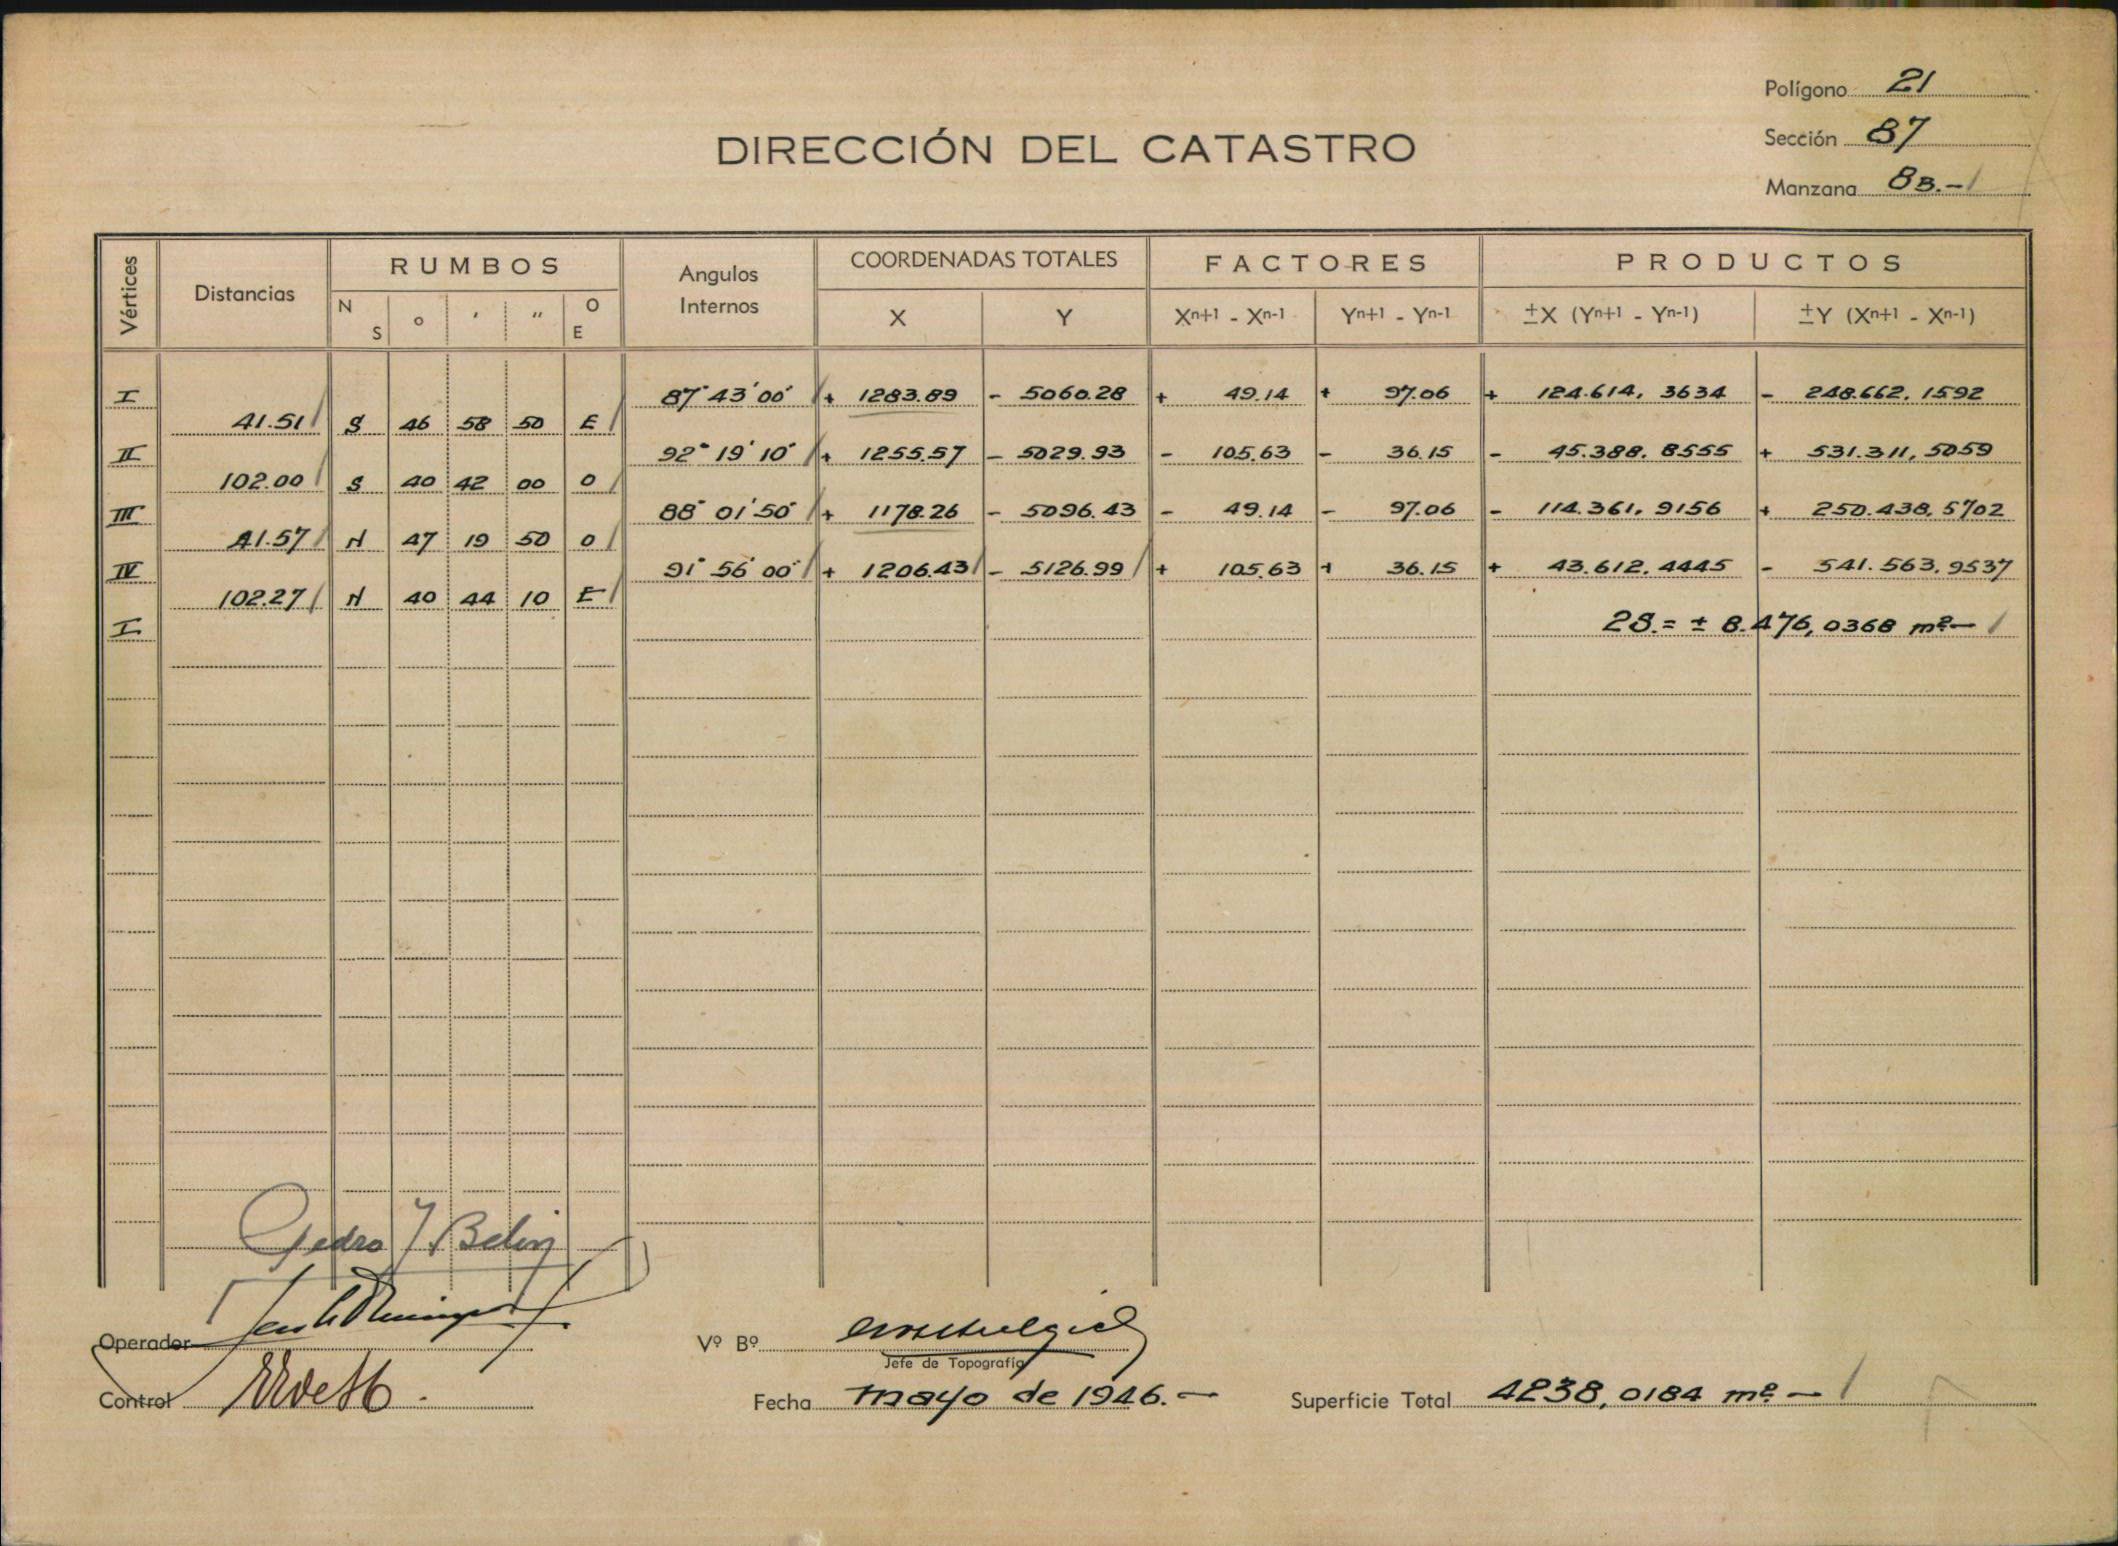 Polígono 21
DIRECCIÓN DEL CATASTRO
Sección 87
Manzana 8B.-
Vértices Distancias RUMBOS Angulos Internos COORDENADAS TOTALES FACTORES PRODUCTOS
N S ° ' " O E X Y Xn+1 - Xn-1 Yn+1 - Yn-1 ±X (Yn+1 - Yn-1) ±Y (Xn+1 - Xn-1)
I 87° 43' 00" + 1283.89 - 5060.28 + 49.14 + 97.06 + 124.614, 3634 - 248.662, 1592
41.51 S 46 58 50 E
II 92° 19' 10" + 1255.57 - 5029.93 - 105.63 - 36.15 - 45.388, 8555 + 531.311, 5059
102.00 S 40 42 00 O
III 88° 01' 50" + 1178.26 - 5096.43 - 49.14 - 97.06 - 114.361, 9156 + 250.438, 5702
41.57 N 47 19 50 O
IV 91° 56' 00" + 1206.43 - 5126.99 + 105.63 + 36.15 + 43.612, 4445 - 541.563, 9537
102.27 N 40 44 10 E
I 2S.= ± 8.476,0368 m2-
Pedro J. Belin
Operador
Vº Bº
Jefe de Topografía
Control
Fecha mayo de 1946.-
Superficie Total 4238,0184 m2-